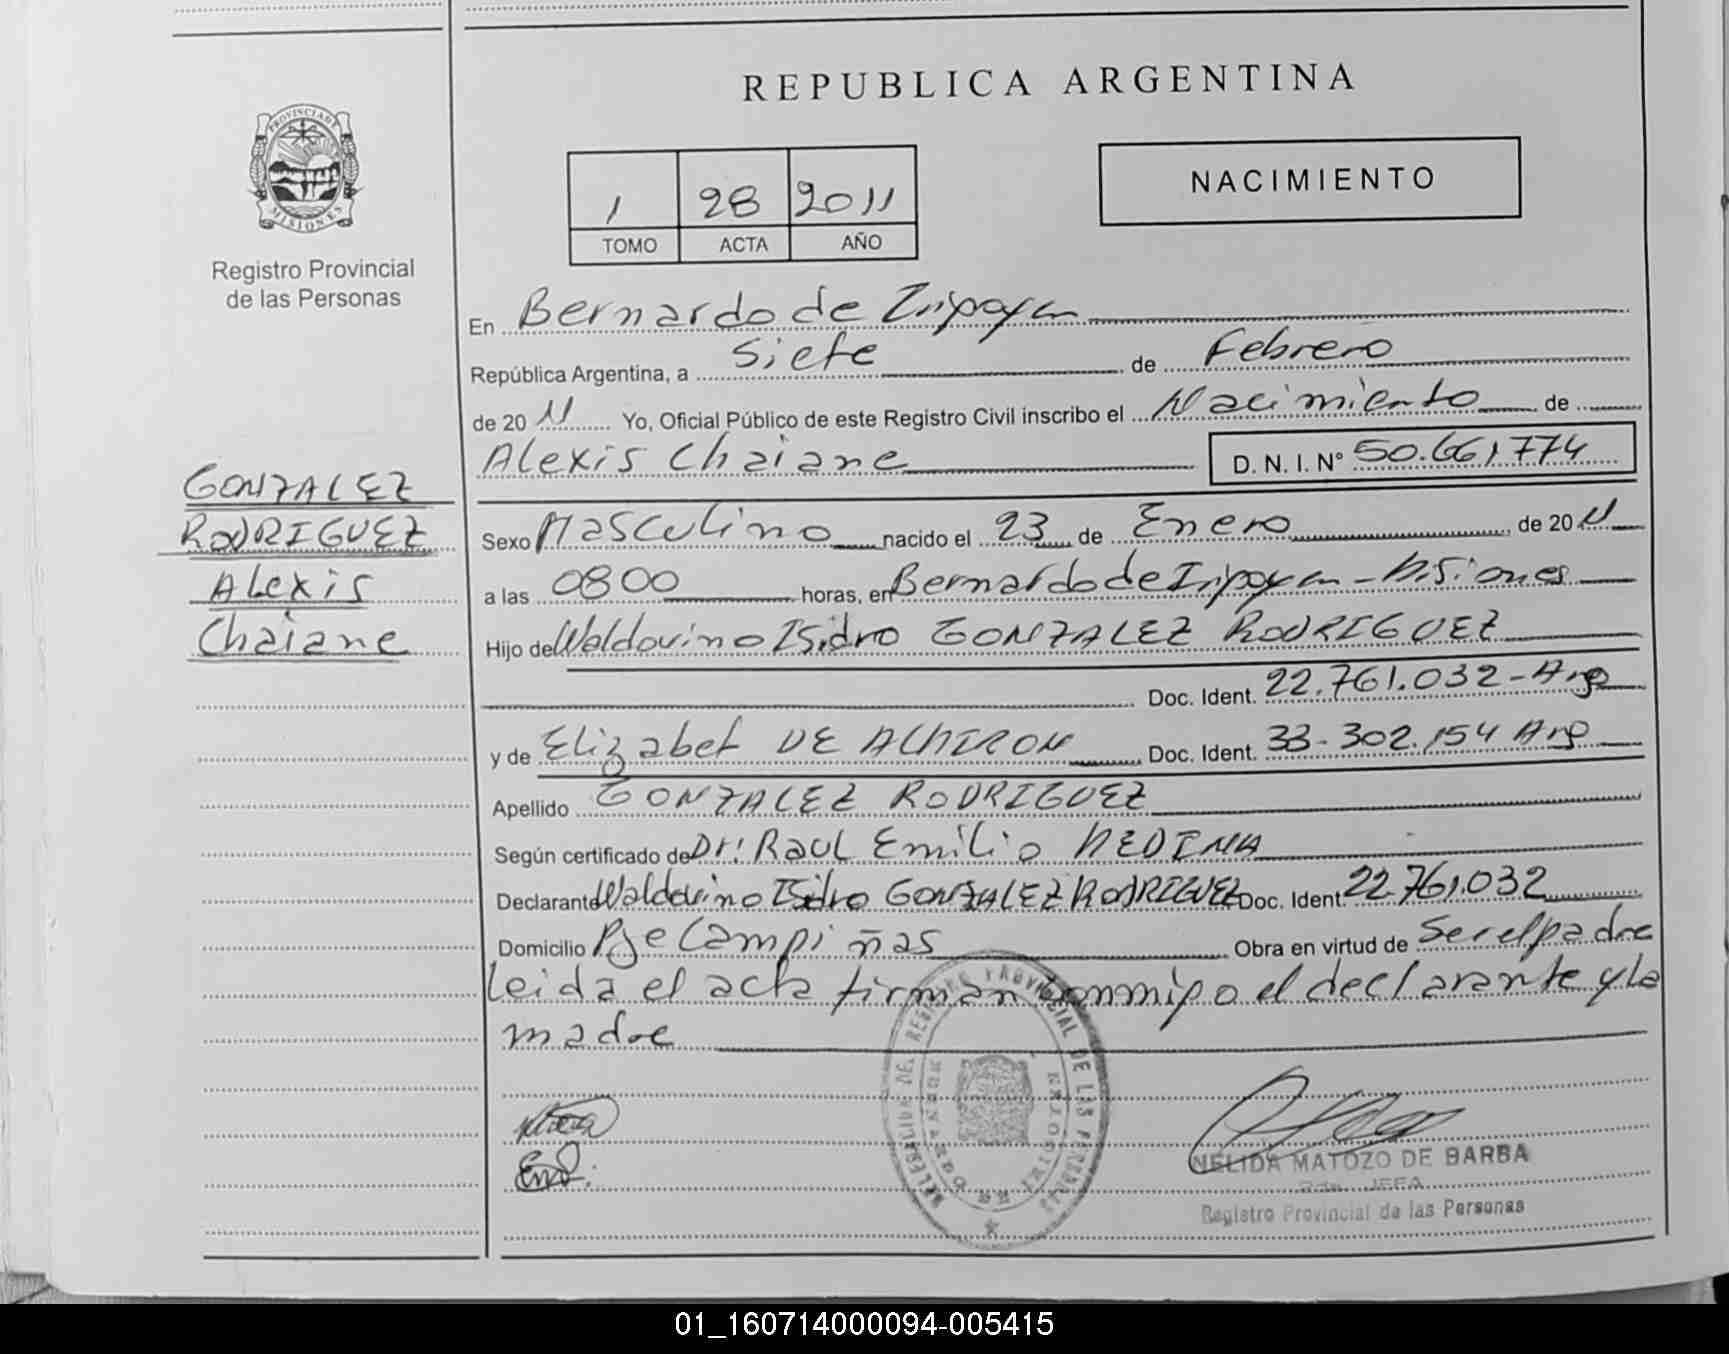 REPUBLICA ARGENTINA
PROVINCIA D
MISIONES
Registro Provincial
de las Personas
1 28 2011
TOMO ACTA AÑO
NACIMIENTO
En Bernardo de Irigoyen
República Argentina, a siete de Febrero
de 20 11 Yo, Oficial Público de este Registro Civil inscribo el Nacimiento de
Alexis Chaiane D. N. I. Nº 50.661.774
GONZALEZ
RODRIGUEZ
Alexis
Chaiane
Sexo Masculino nacido el 23 de Enero de 20 11
a las 08 00 horas, en Bernardo de Irigoyen - Misiones
Hijo de Waldovino Isidro GONZALEZ RODRIGUEZ
Doc. Ident. 22.761.032 - Arg
y de Elizabet DE Doc. Ident. 33-302.154 Arg
Apellido GONZALEZ RODRIGUEZ
Según certificado de Dr: Raul Emilio MEDINA
Declarante Waldovino Isidro GONZALEZ RODRIGUEZ Doc. Ident. 22.761.032
Domicilio Pje Campiñas Obra en virtud de Ser el padre
Leida el acta firman conmigo el declarante y la
madre
PROVINCIAL DE LAS PERSONAS
NELIDA MATOZO DE BARBA
JEFA
Registro Provincial de las Personas
01_160714000094-005415